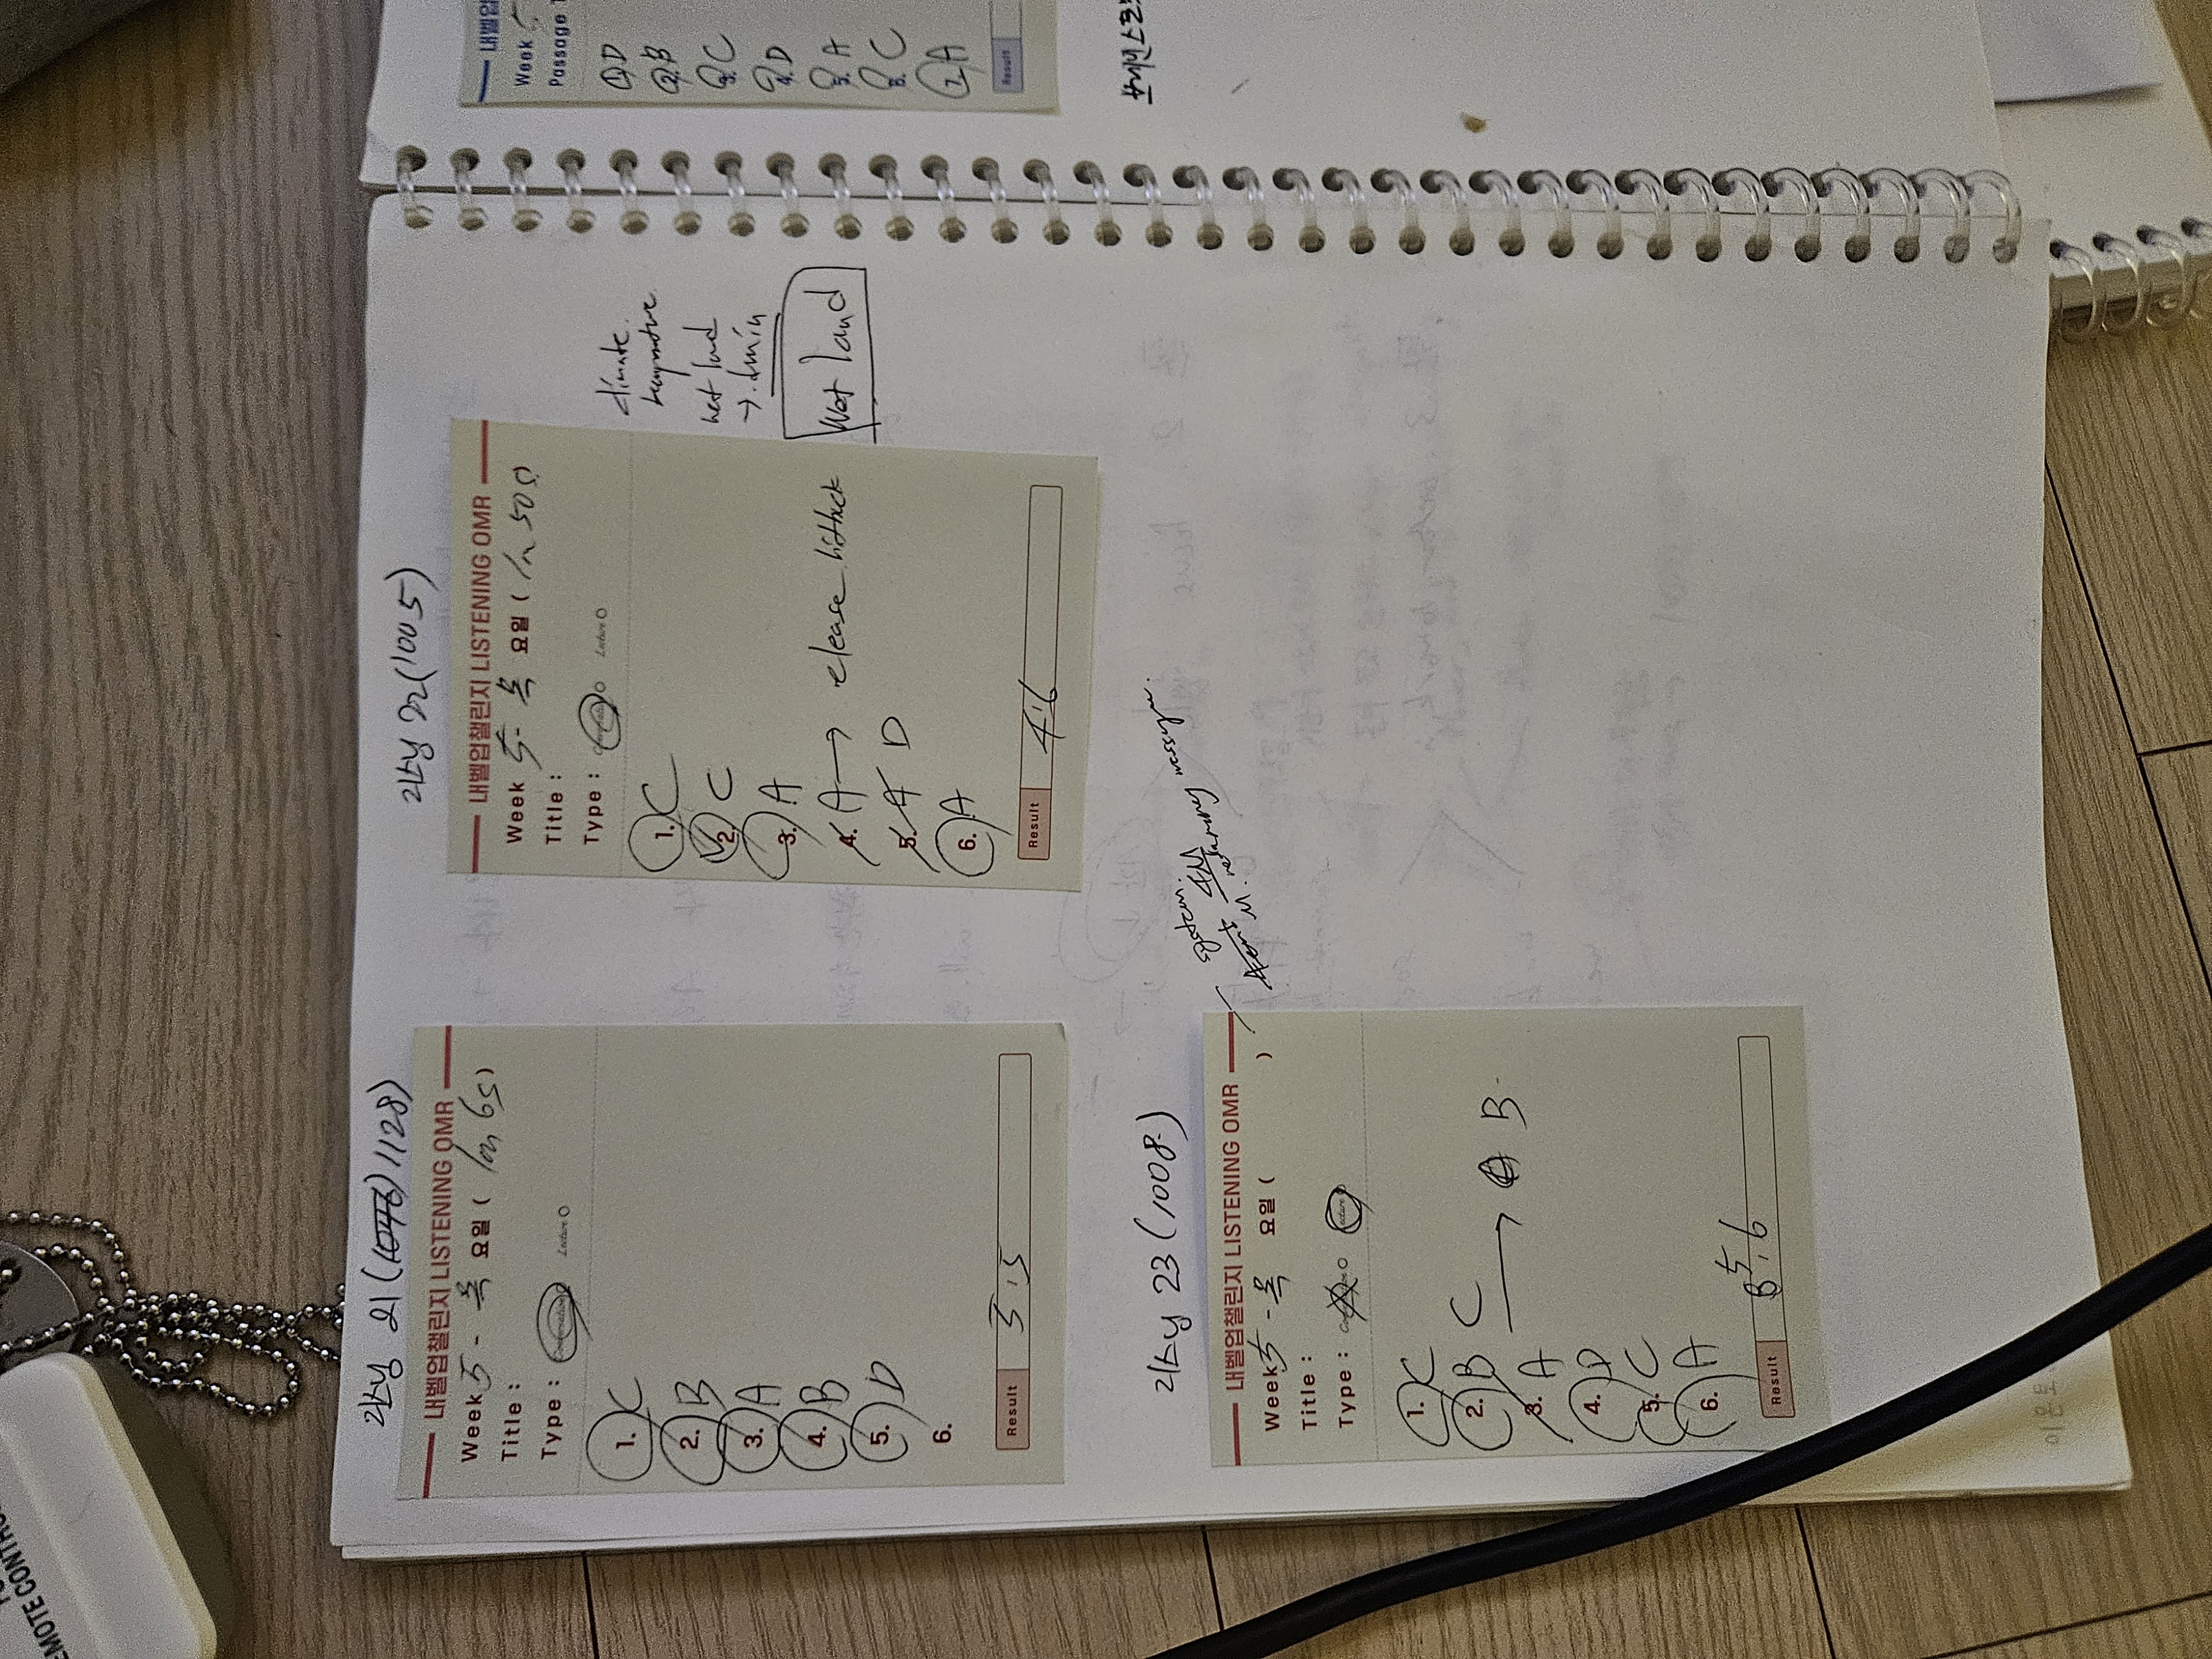 리스닝 21 (1128)
내벨업챌린지 LISTENING OMR
Week 5 - 목 요일 ( 1m 6s )
Title :
Type : Conversation Lecture O
1. C
2. B
3. A
4. B
5. D
6.
Result 5.5
리스닝 22 (1005)
내벨업챌린지 LISTENING OMR
Week 5 - 목 요일 ( 1m 50s )
Title :
Type : Lecture O
1. C
2. C
3. A
4. A →
5. A D
6. A
Result 4.6
climate
wet land
→
Wet land
리스닝 23 (1008)
내벨업챌린지 LISTENING OMR
Week 5 - 목 요일 ( )
Title :
Type :
1. C
2. B C
3. A → B
4. D
5. C
6. A
Result 5.6
system.
내벨업
Week 5
Passage 1
1. D
2. B
3. C
4. D
5. A
6. C
7. A
Result
REMOTE CONTRO